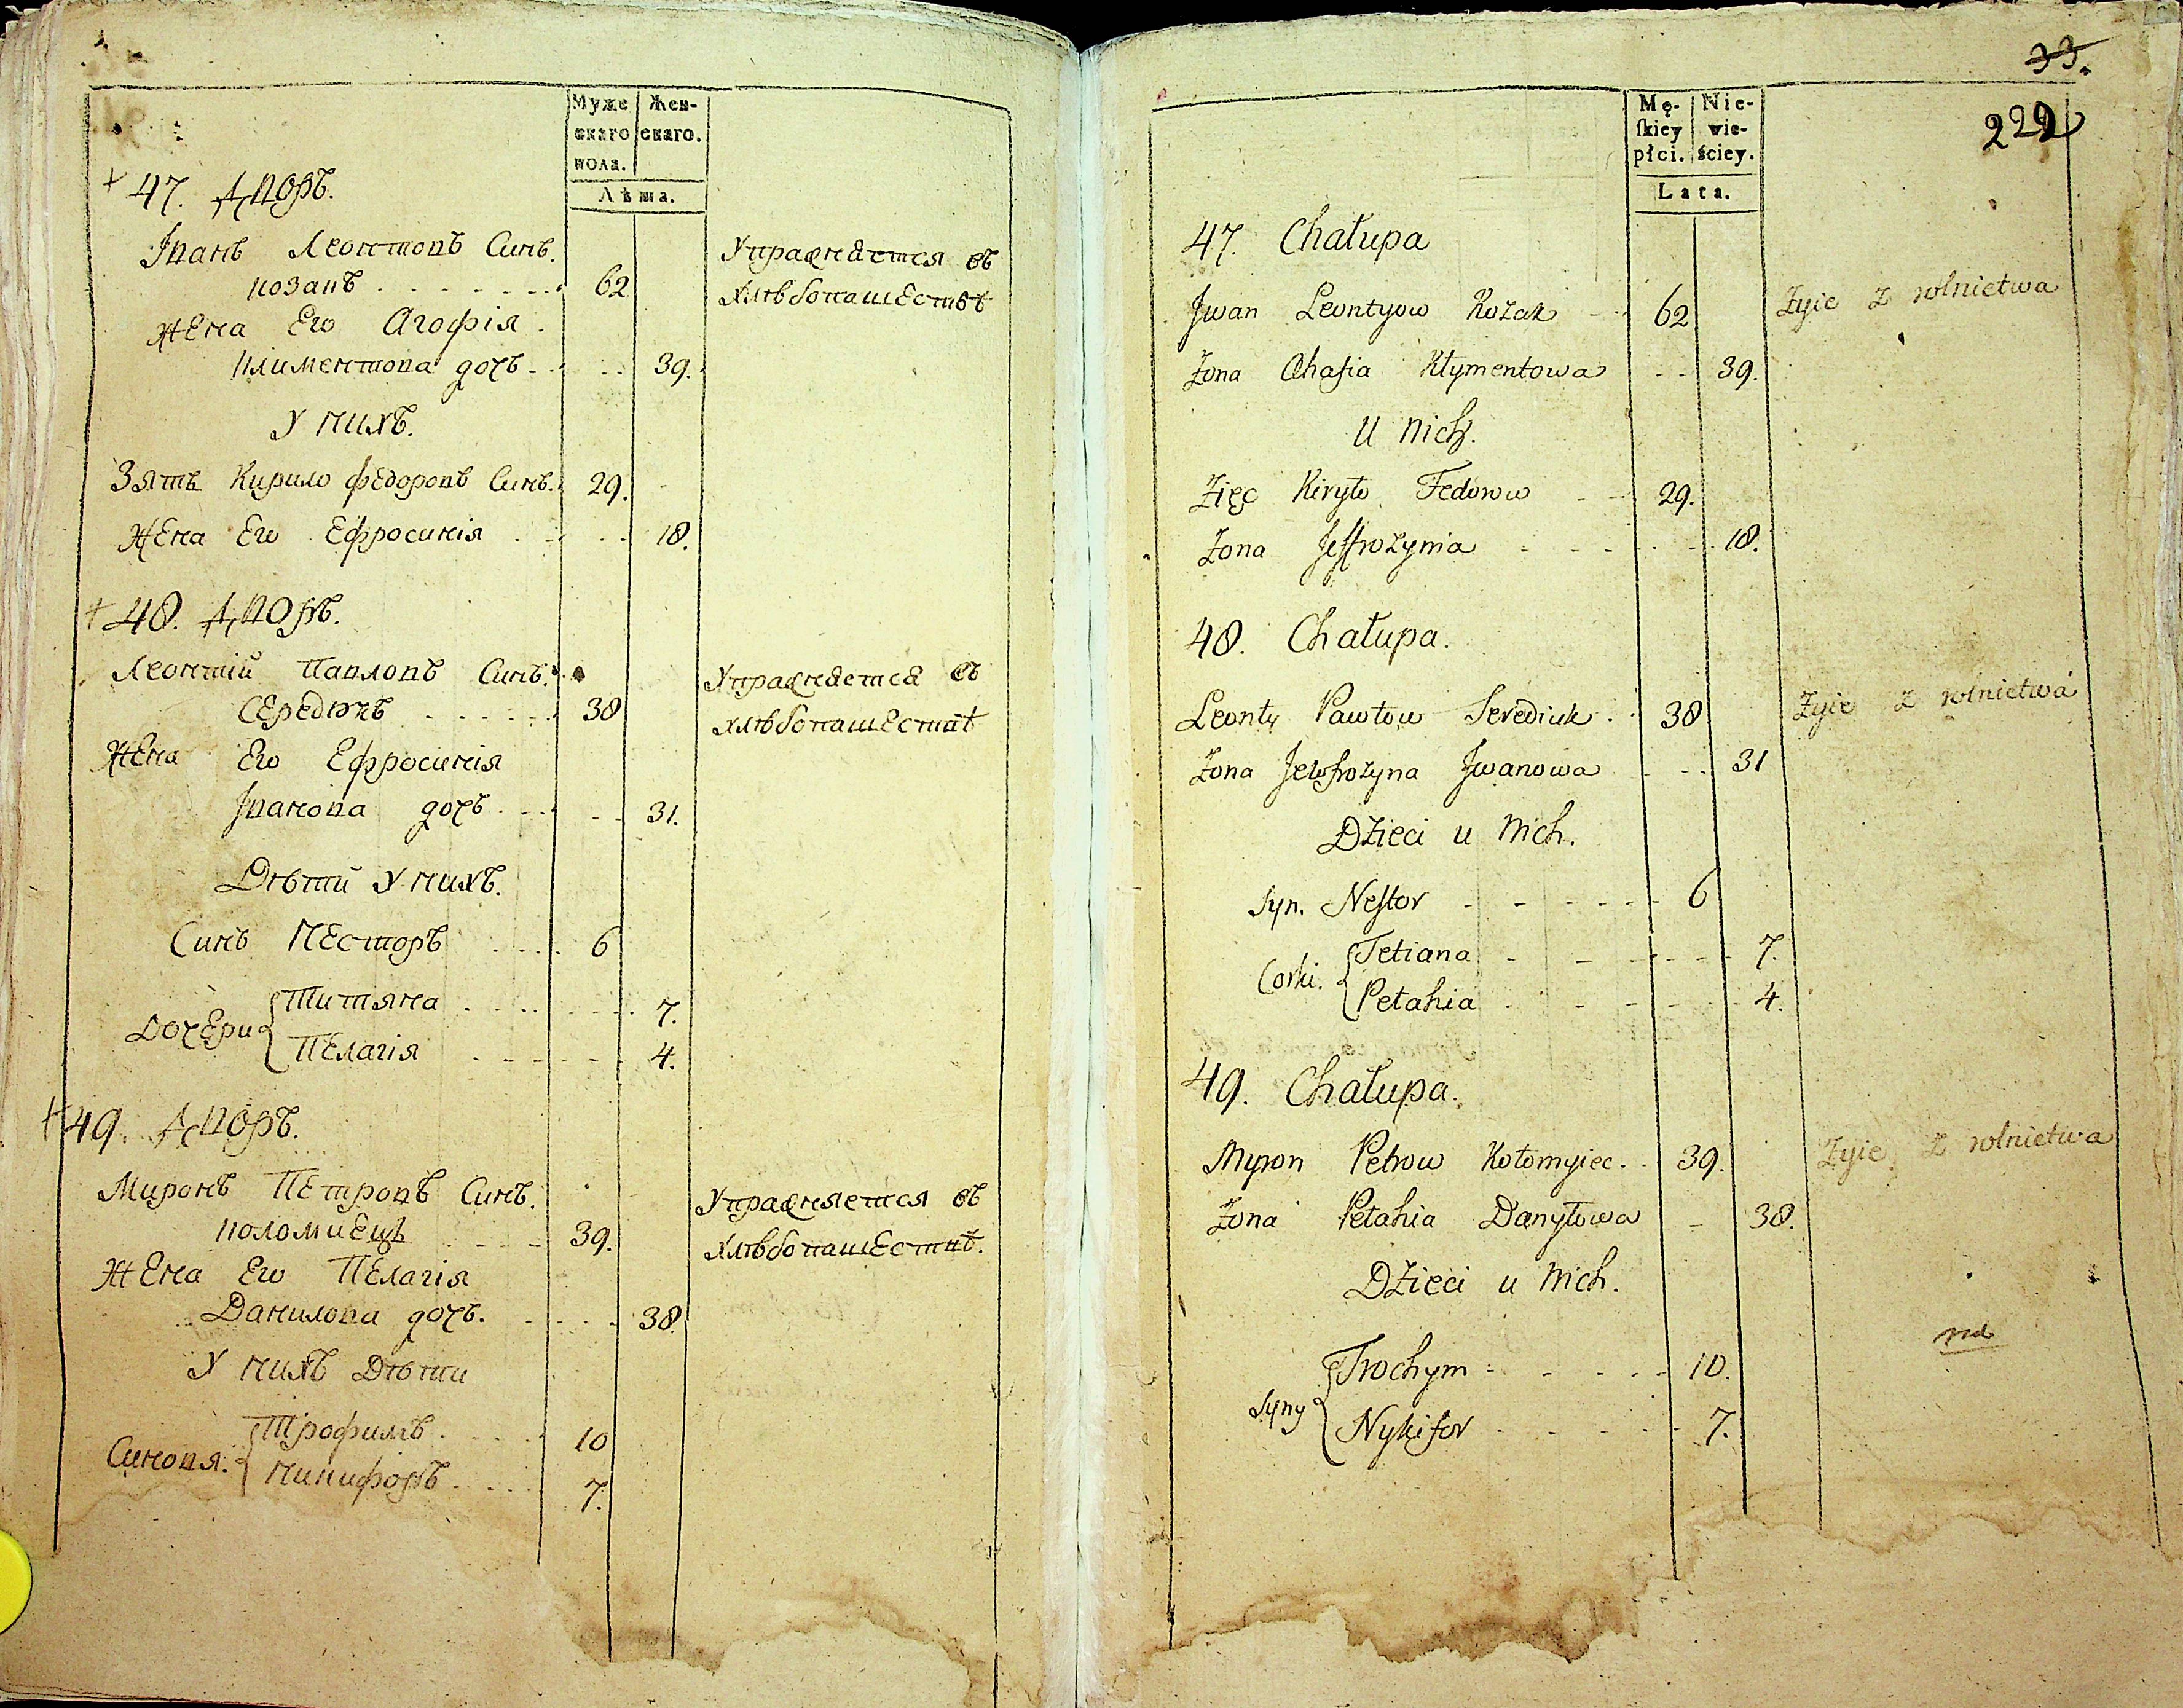 Муже Жен-
скаго скаго.
пола.
Лѣта.
+ 47. Дворъ.
Іванъ Леонтовъ Синъ. Упражняется въ
козакъ . . . . . . 62 хлѣбопашествѣ
Жена Его Агофія .
Климентова дочъ - - . . 39.
У нихъ.
Зять Кирило Федоровъ Синъ. 29.
Жена Его Ефросинія . - . . 18.
+ 48. Дворъ.
Леонтій Павловъ Синъ. Упражняется въ
Середюкъ . . . . . . 38 хлѣбопашествѣ
Жена Его Ефросинія
Іванова дочъ . . . - - 31.
Дѣтий У нихъ.
Синъ Несторъ . . . . 6
Дочери { Титяна . . . . . . . 7.
Пелагія . - - - . . 4.
+ 49. Дворъ.
Миронъ Петровъ Синъ. Упражняется въ
коломиецъ - - - 39. хлѣбопашествѣ.
Жена Его Пелагія
Данилова дочъ. . . . . 38.
У нихъ Дѣти
Синовя. { Трофимъ . . . . 10
Никифоръ . . . . 7.
33.
222
Mę- Nie-
ſkiey wie-
płci. ściey.
Lata.
47. Chałupa
Jwan Leontyow Kozak - - 62 Zyie z rolnictwa
Zona Ohafia Kłymentowa - - 39.
U nich.
Zięc Kiryło Fedorow - - 29.
Zona Jeffrozynia - - - . - 18.
48. Chałupa.
Leonty Pawłow Serediuk . 38 Zyie z rolnictwa
Zona Jewfrozyna Jwanowa - . . 31
Dzieci u nich.
Syn. Neſtor - - - - - 6
Corki. { Tetiana - - - - - - 7.
Petahia . - - - - - 4.
49. Chałupa.
Myron Petrow Kołomyiec. . 39. Zyie z rolnictwa
Zona Petahia Danyłowa - 38.
Dzieci u nich.
Syny { Trochym - - - - - 10.
Nykifor - - - - - 7.